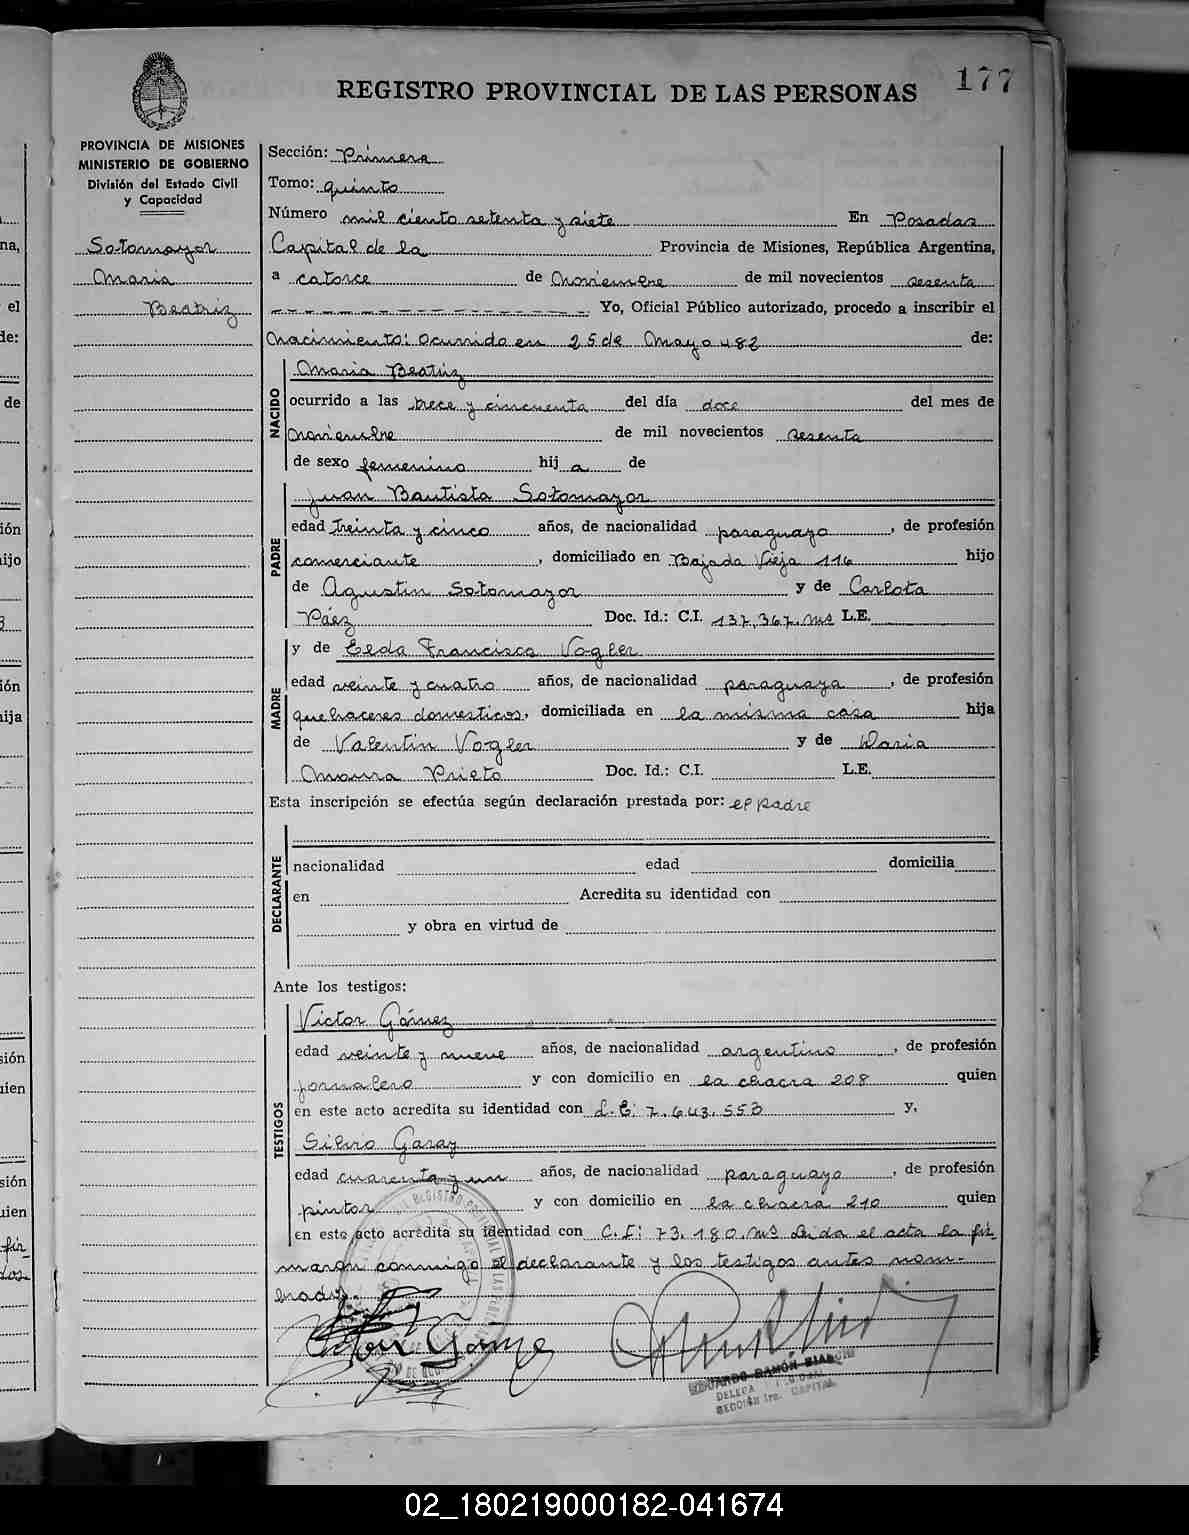 REGISTRO PROVINCIAL DE LAS PERSONAS
177
PROVINCIA DE MISIONES
MINISTERIO DE GOBIERNO
División del Estado Civil
y Capacidad
Sotomayor
Maria
Beatriz
Sección: Primera
Tomo: quinto
Número mil ciento setenta y siete En Posadas
Capital de la Provincia de Misiones, República Argentina,
a catorce de Noviembre de mil novecientos sesenta
Yo, Oficial Público autorizado, procedo a inscribir el
Nacimiento: Ocurrido en 25 de Mayo 482 de:
NACIDO
Maria Beatriz
ocurrido a las trece y cincuenta del día doce del mes de
Noviembre de mil novecientos sesenta
de sexo femenino hij a de
PADRE
Juan Bautista Sotomayor
edad treinta y cinco años, de nacionalidad paraguayo, de profesión
comerciante, domiciliado en Bajada Vieja 116 hijo
de Agustin Sotomayor y de Carlota
Páez Doc. Id.: C.I. 137.367. Ms L.E.
MADRE
y de Elda Francisca Vogler
edad veinte y cuatro años, de nacionalidad paraguaya, de profesión
quehaceres domesticos, domiciliada en la misma casa hija
de Valentin Vogler y de Maria
Maura Prieto Doc. Id.: C.I. L.E.
Esta inscripción se efectúa según declaración prestada por: el padre
DECLARANTE
nacionalidad edad domicilia
en Acredita su identidad con
y obra en virtud de
Ante los testigos:
TESTIGOS
Victor Gómez
edad veinte y nueve años, de nacionalidad argentino, de profesión
jornalero y con domicilio en la chacra 208 quien
en este acto acredita su identidad con L.E: 7.643.553 y,
Silvio Garay
edad cuarenta y un años, de nacionalidad paraguayo, de profesión
pintor y con domicilio en la chacra 210 quien
en este acto acredita su identidad con C.I: 73.180. Ms Leida el acta la fir
maron conmigo el declarante y los testigos antes nom-
brados.
Victor Gómez
DELEGA
SECCIÓN 1ra. CAPITAL
02_180219000182-041674